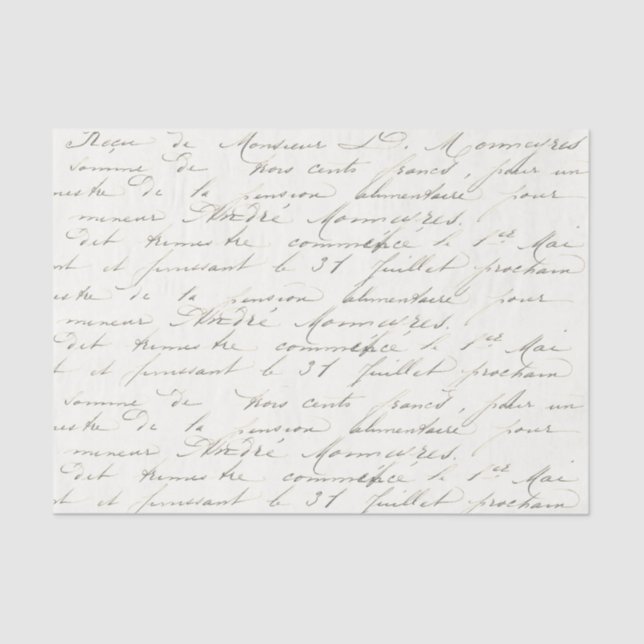 Reçu de Monsieur D. Monnieres
somme de trois cents francs, pour un
mestre de la pension alimentaire pour
mineur André Monnieres.
dit trimestre commencé le 1er Mai
nt et finissant le 31 Juillet prochain
estre de la pension alimentaire pour
mineur André Monnieres.
dit trimestre commencé le 1er Mai
nt et finissant le 31 Juillet prochain
somme de trois cents francs, pour un
estre de la pension alimentaire pour
mineur André Monnieres.
dit trimestre commencé le 1er Mai
nt et finissant le 31 Juillet prochain